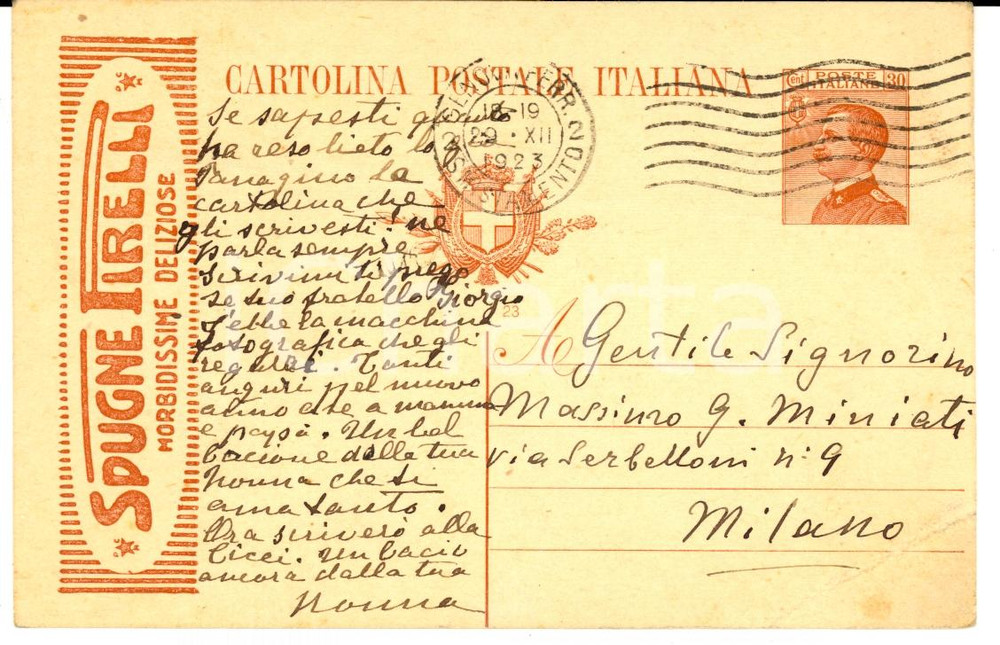 SPUGNE PIRELLI
MORBIDISSIME DELIZIOSE
CARTOLINA POSTALE ITALIANA
Cent POSTE 30
ITALIANE
18-19
29 · XII
1923
Se sapesti quanto
ha reso lieto lo
la
cartolina che
gli scrivesti! ne
parla sempre
Scrivimi ti prego
se tuo fratello Giorgio
s'ebbe la macchina
fotografica che gli
regalai. Tanti
auguri pel nuovo
anno che a mamma
e papà. Un bel
bacione dalla tua
Nonna che ti
ama tanto.
Ora scriverò alla
Cicci. Un bacio
ancora dalla tua
Nonna
23
A Gentile Signorino
Massimo G. Miniati
via Serbelloni nº 9
Milano